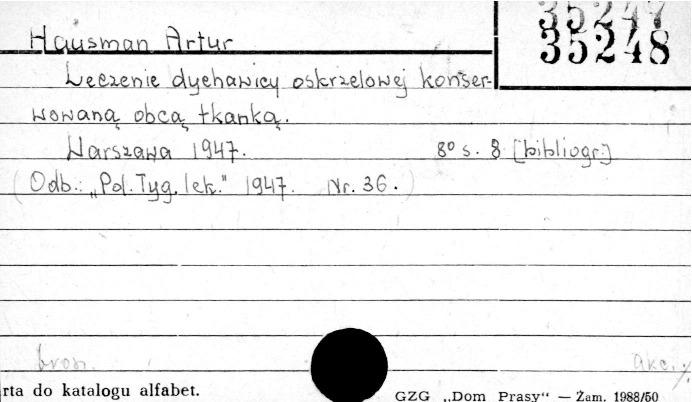 35247
35248
Hausman Artur
Leczenie dychawicy oskrzelowej konser-
wowaną obcą tkanką.
Warszawa 1947. 8° s. 8 [bibliogr.]
(Odb.: „Pol. Tyg. lek." 1947. Nr. 36.)
brosz. akc.
rta do katalogu alfabet.
GZG „Dom Prasy“ — Zam. 1988/50